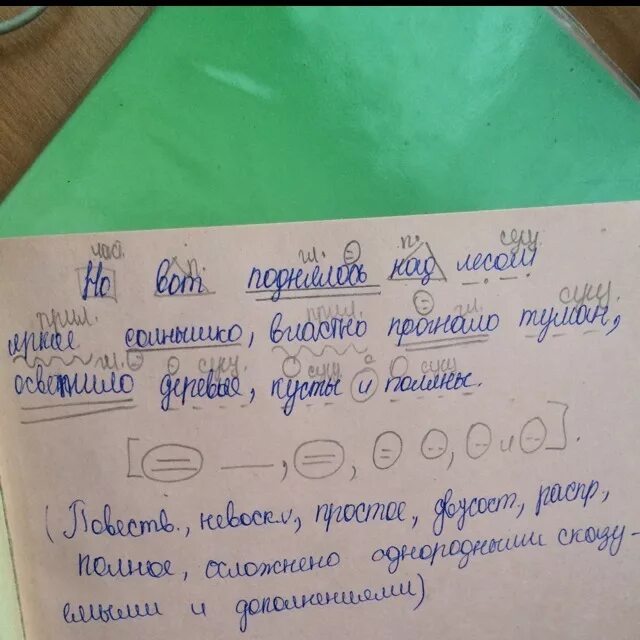 час. гл. п. сущ.
Но вот поднялось над лесом
прил. прил. гл. сущ.
яркое солнышко, властно прогнало туман,
гл. сущ. сущ. сущ.
осветило деревья, кусты и поляны.
[=  —, =, = - -, - - и - -].
(Повеств., невоскл, простое, двусост, распр,
полное, осложнено однородными сказу-
емыми и дополнениями)